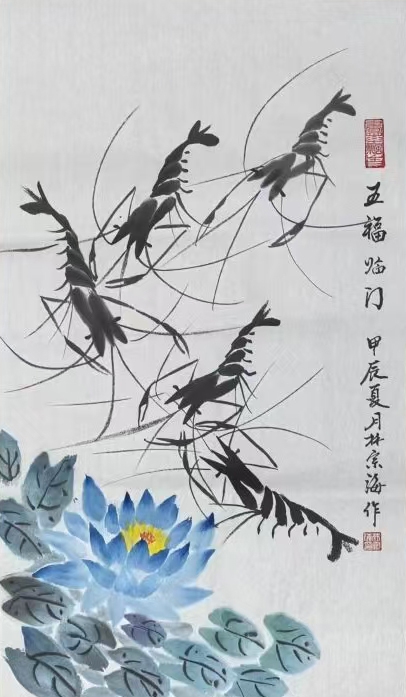 五福临门
甲辰夏月林宗海作